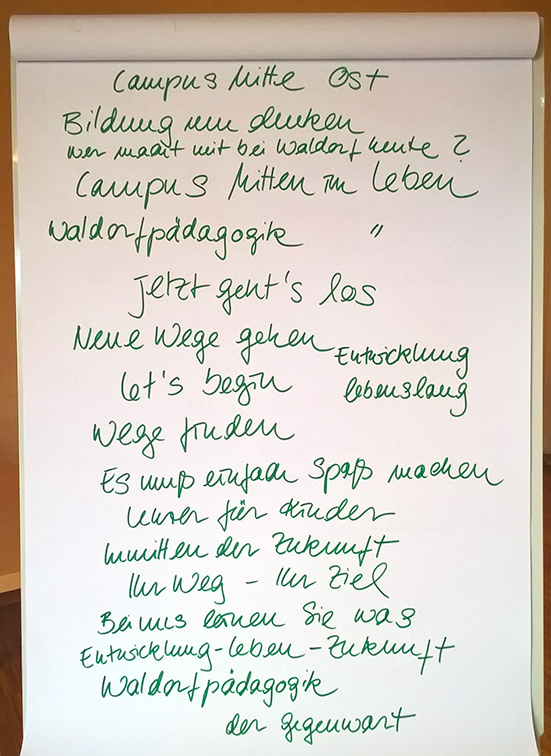 Campus Mitte Ost
Bildung neu denken
wer macht mit bei Waldorf heute?
Campus Mitten im Leben
Waldorfpädagogik "
Jetzt geht's los
Neue Wege gehen
Entwicklung
lebenslang
Let's begin
Wege finden
Es muß einfach Spaß machen
Lehrer für Kinder
Inmitten der Zukunft
Ihr Weg - Ihr Ziel
Bei uns lernen Sie was
Entwicklung-Leben-Zukunft
Waldorfpädagogik
der Gegenwart